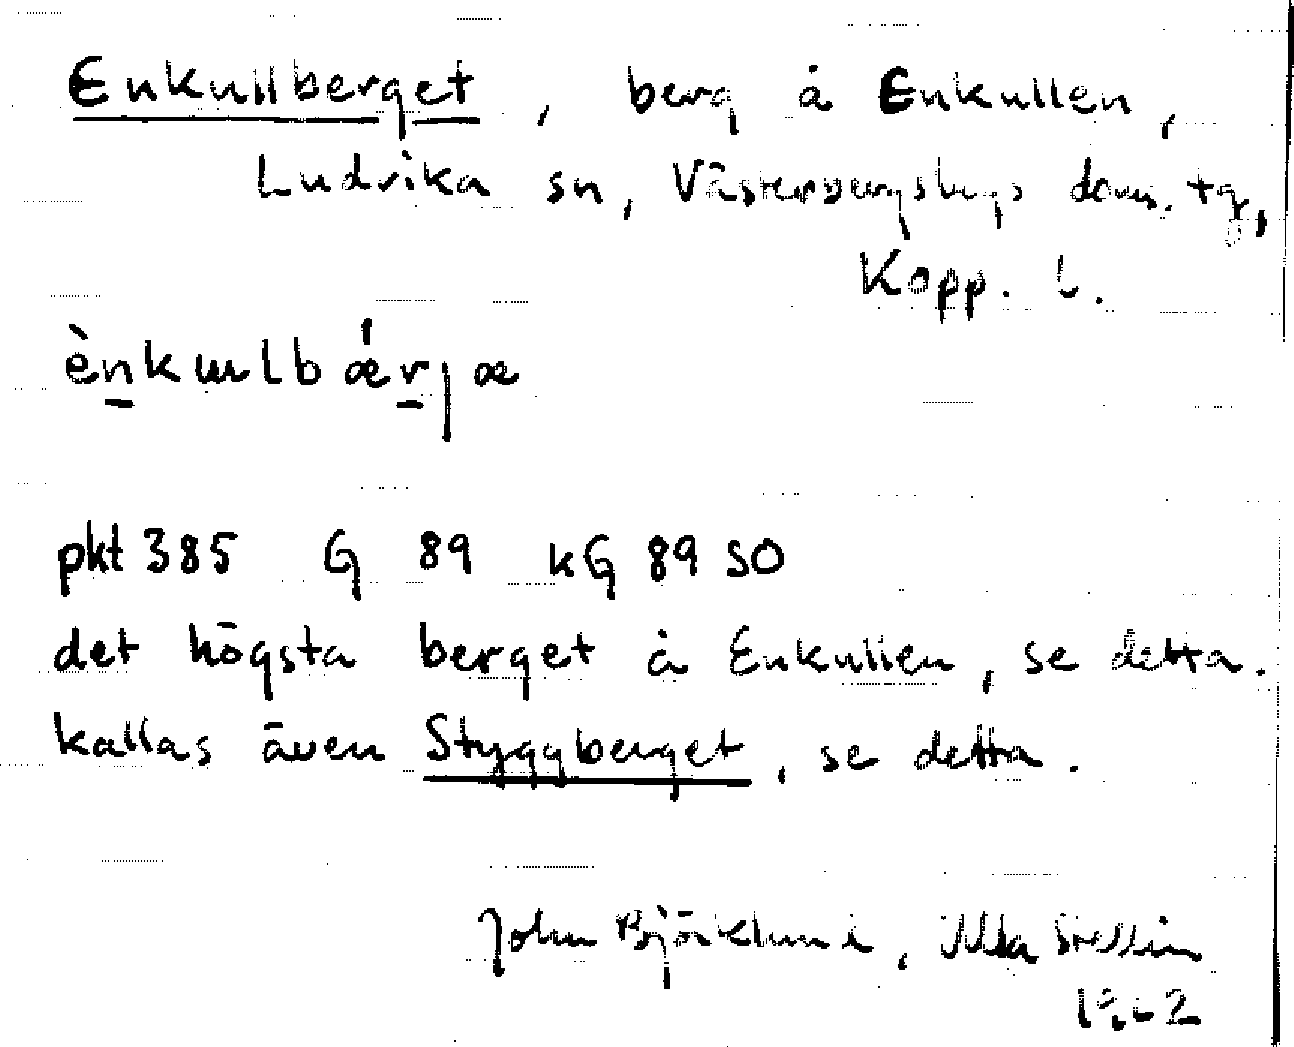 Enkullberget, berg å Enkullen,
Ludvika sn, Västerbergslags doms. tg,
Kopp. l.
ènkɯlbǽrjæ
pkt 385 G 89 kG 89 SO
det högsta berget å Enkullen, se detta.
kallas även Styggberget, se detta.
John Björklund, Ulla
1962